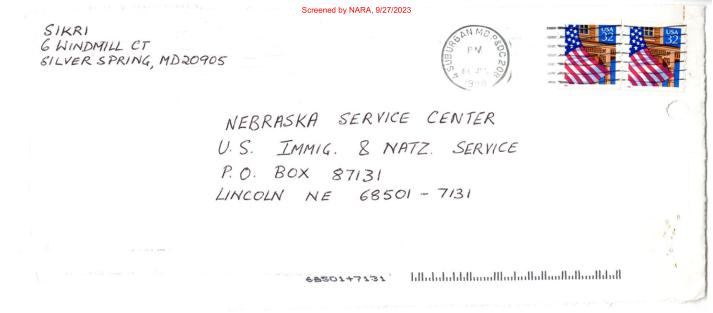 Screened by NARA, 9/27/2023
SIKRI
6 WINDMILL CT
SILVER SPRING, MD 20905
SUBURBAN MD P&DC 208
PM
USA 32
USA 32
NEBRASKA SERVICE CENTER
U.S. IMMIG. & NATZ. SERVICE
P.O. BOX 87131
LINCOLN NE 68501-7131
68501+7131